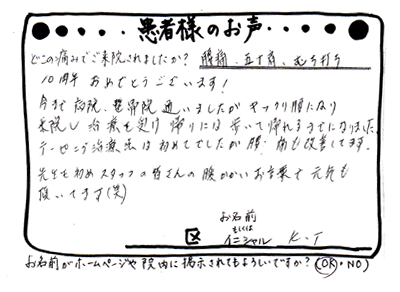 患者様のお声
どこの痛みでご来院されましたか？ 腰痛、五十肩、むち打ち
10周年 おめでとうございます！
今まで病院、整骨院 通いましたが ギックリ腰になり
来院し 治療を受け 帰りには 歩いて帰れるまでになりました
テーピング治療法は初めてでしたが 腰 痛も改善してます。
先生を初め スタッフの皆さんの 暖かいお言葉で 元気も
頂いてます(笑)
区 お名前
もしくは
イニシャル K.T
お名前がホームページや院内に掲示されてもよろしいですか？(OK・NO)